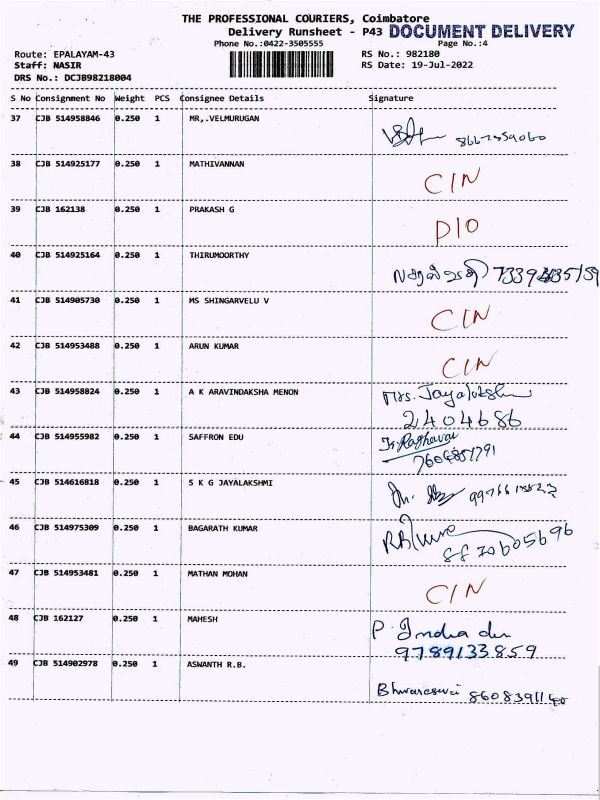 THE PROFESSIONAL COURIERS, Coimbatore
Delivery Runsheet - P43 DOCUMENT DELIVERY
Phone No.:0422-3505555 Page No.:4
Route: EPALAYAM-43 RS No.: 982180
Staff: NASIR RS Date: 19-Jul-2022
DRS No.: DCJB98218004
S No Consignment No Weight PCS Consignee Details Signature
37 CJB 514958846 0.250 1 MR,.VELMURUGAN
38 CJB 514925177 0.250 1 MATHIVANNAN
C/N
39 CJB 162138 0.250 1 PRAKASH G
D/O
40 CJB 514925164 0.250 1 THIRUMOORTHY
41 CJB 514905730 0.250 1 MS SHINGARVELU V
C/N
42 CJB 514953488 0.250 1 ARUN KUMAR
C/N
43 CJB 514958824 0.250 1 A K ARAVINDAKSHA MENON
Mrs. Jayalakshmi
2404686
44 CJB 514955982 0.250 1 SAFFRON EDU
Raghavan
45 CJB 514616818 0.250 1 S K G JAYALAKSHMI
46 CJB 514975309 0.250 1 BAGARATH KUMAR
47 CJB 514953481 0.250 1 MATHAN MOHAN
C/N
48 CJB 162127 0.250 1 MAHESH
P. Indra
9789133859
49 CJB 514902978 0.250 1 ASWANTH R.B.
Bhuvaneswari